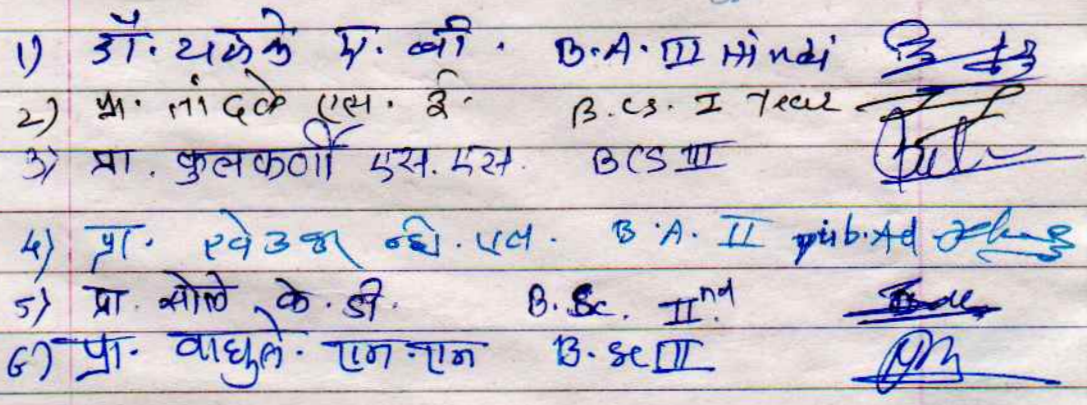 1) डॉ. यळेके ए. बी. B.A. III Hindi
2) प्रा. तांदळे एस. ई. B.CS. I Year
3) प्रा. कुलकर्णी एस. एस. BCS III
4) प्रा. व्ही. एल. B.A. II pub.Ad
5) प्रा. सोले के. डी. B.Sc. IInd
6) प्रा. वाघुले. एन. एन B.Sc III